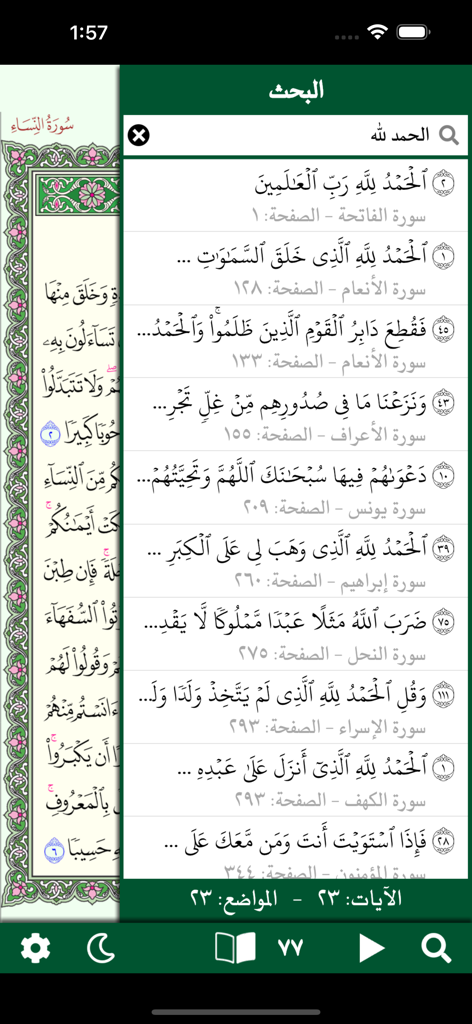 1:57
البحث
الحمد لله
ٱلْحَمْدُ لِلَّهِ رَبِّ ٱلْعَٰلَمِينَ ٢
سورة الفاتحة - الصفحة: ١
ٱلْحَمْدُ لِلَّهِ ٱلَّذِى خَلَقَ ٱلسَّمَٰوَٰتِ ... ١
سورة الأنعام - الصفحة: ١٢٨
فَقُطِعَ دَابِرُ ٱلْقَوْمِ ٱلَّذِينَ ظَلَمُوا۟ ۚ وَٱلْحَمْدُ... ٤٥
سورة الأنعام - الصفحة: ١٣٣
وَنَزَعْنَا مَا فِى صُدُورِهِم مِّنْ غِلٍّ تَجْرِ... ٤٣
سورة الأعراف - الصفحة: ١٥٥
دَعْوَىٰهُمْ فِيهَا سُبْحَٰنَكَ ٱللَّهُمَّ وَتَحِيَّتُهُمْ... ١٠
سورة يونس - الصفحة: ٢٠٩
ٱلْحَمْدُ لِلَّهِ ٱلَّذِى وَهَبَ لِى عَلَى ٱلْكِبَرِ ... ٣٩
سورة إبراهيم - الصفحة: ٢٦٠
ضَرَبَ ٱللَّهُ مَثَلًا عَبْدًا مَّمْلُوكًا لَّا يَقْدِ... ٧٥
سورة النحل - الصفحة: ٢٧٥
وَقُلِ ٱلْحَمْدُ لِلَّهِ ٱلَّذِى لَمْ يَتَّخِذْ وَلَدًا وَلَ... ١١١
سورة الإسراء - الصفحة: ٢٩٣
ٱلْحَمْدُ لِلَّهِ ٱلَّذِىٓ أَنزَلَ عَلَىٰ عَبْدِهِ ... ١
سورة الكهف - الصفحة: ٢٩٣
فَإِذَا ٱسْتَوَيْتَ أَنتَ وَمَن مَّعَكَ عَلَى ... ٢٨
سورة المؤمنون - الصفحة: ٣٤٤
الآيات: ٢٣ - المواضع: ٢٣
سُورَةُ النِّسَاءِ
وَخَلَقَ مِنْهَا
تَسَآءَلُونَ بِهِۦ
وَلَا تَتَبَدَّلُوا۟
حُوبًا كَبِيرًا ٢
مِّنَ ٱلنِّسَآءِ
أَيْمَٰنُكُمْ ۚ
فَإِن طِبْنَ
ٱلسُّفَهَآءَ
وَقُولُوا۟ لَهُمْ
ءَانَسْتُم مِّنْهُمْ
أَن يَكْبَرُوا۟ ۚ
بِٱلْمَعْرُوفِ ۚ
حَسِيبًا ٦
٧٧